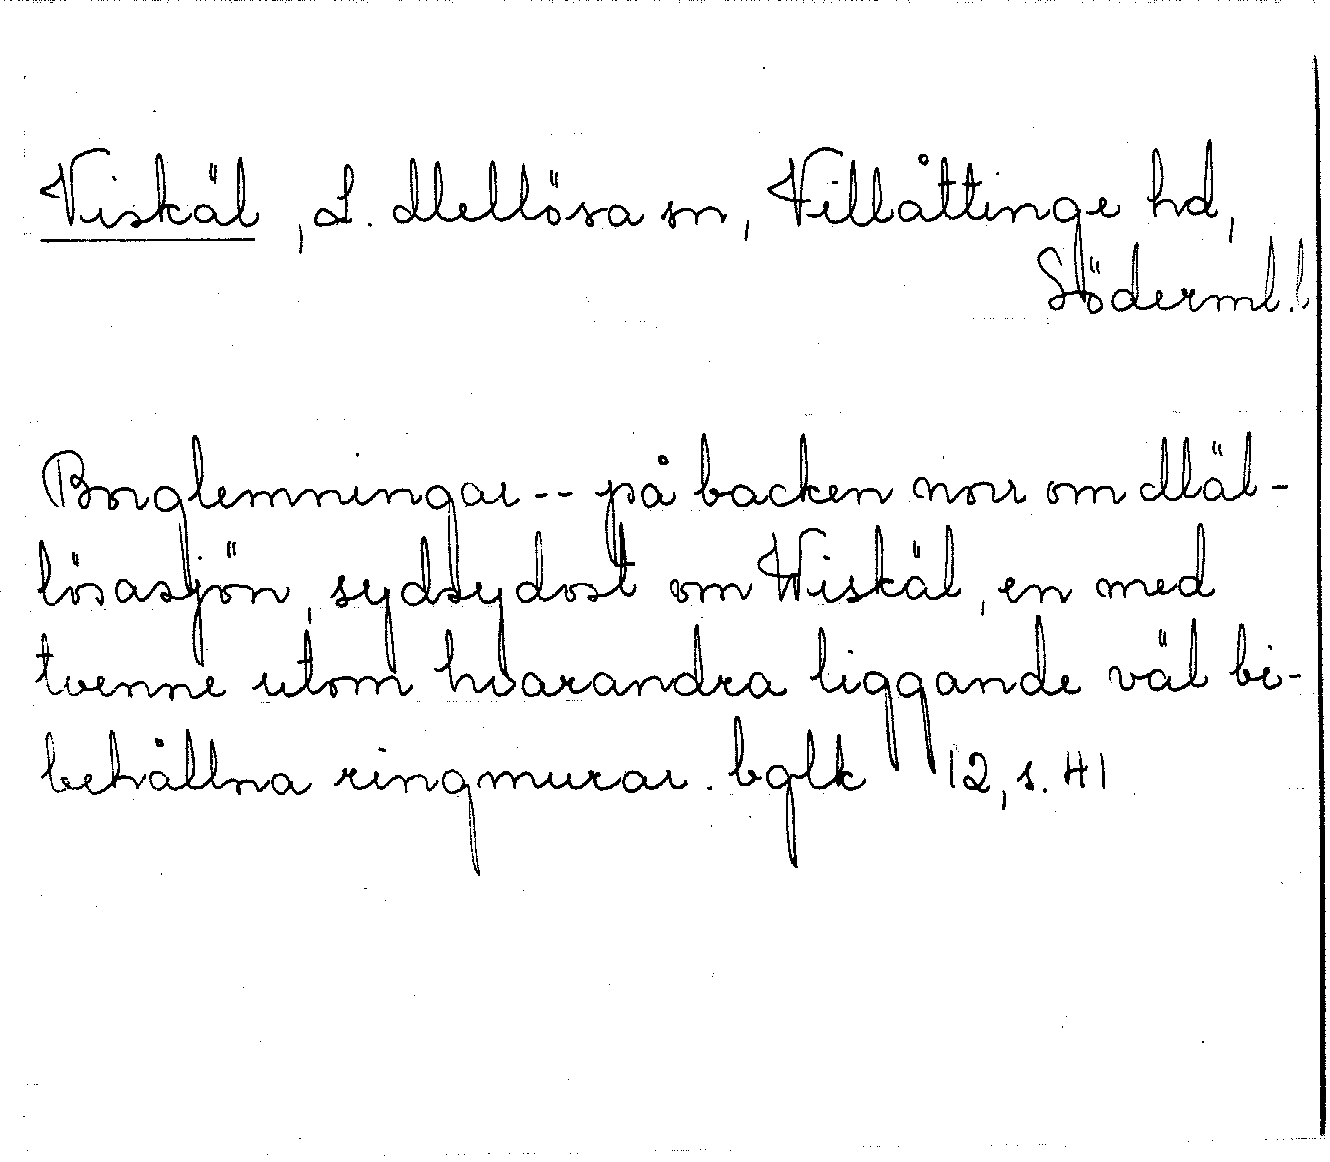 Viskäl, L. Mellösa sn, Villåttinge hd,
Söderml. l
Borglemningar -- på backen norr om Mäl-
lösasjön, sydsydost om Wiskäl, en med
tvenne utom hvarandra liggande väl bi-
behållna ringmurar. bglk 12, s. 41